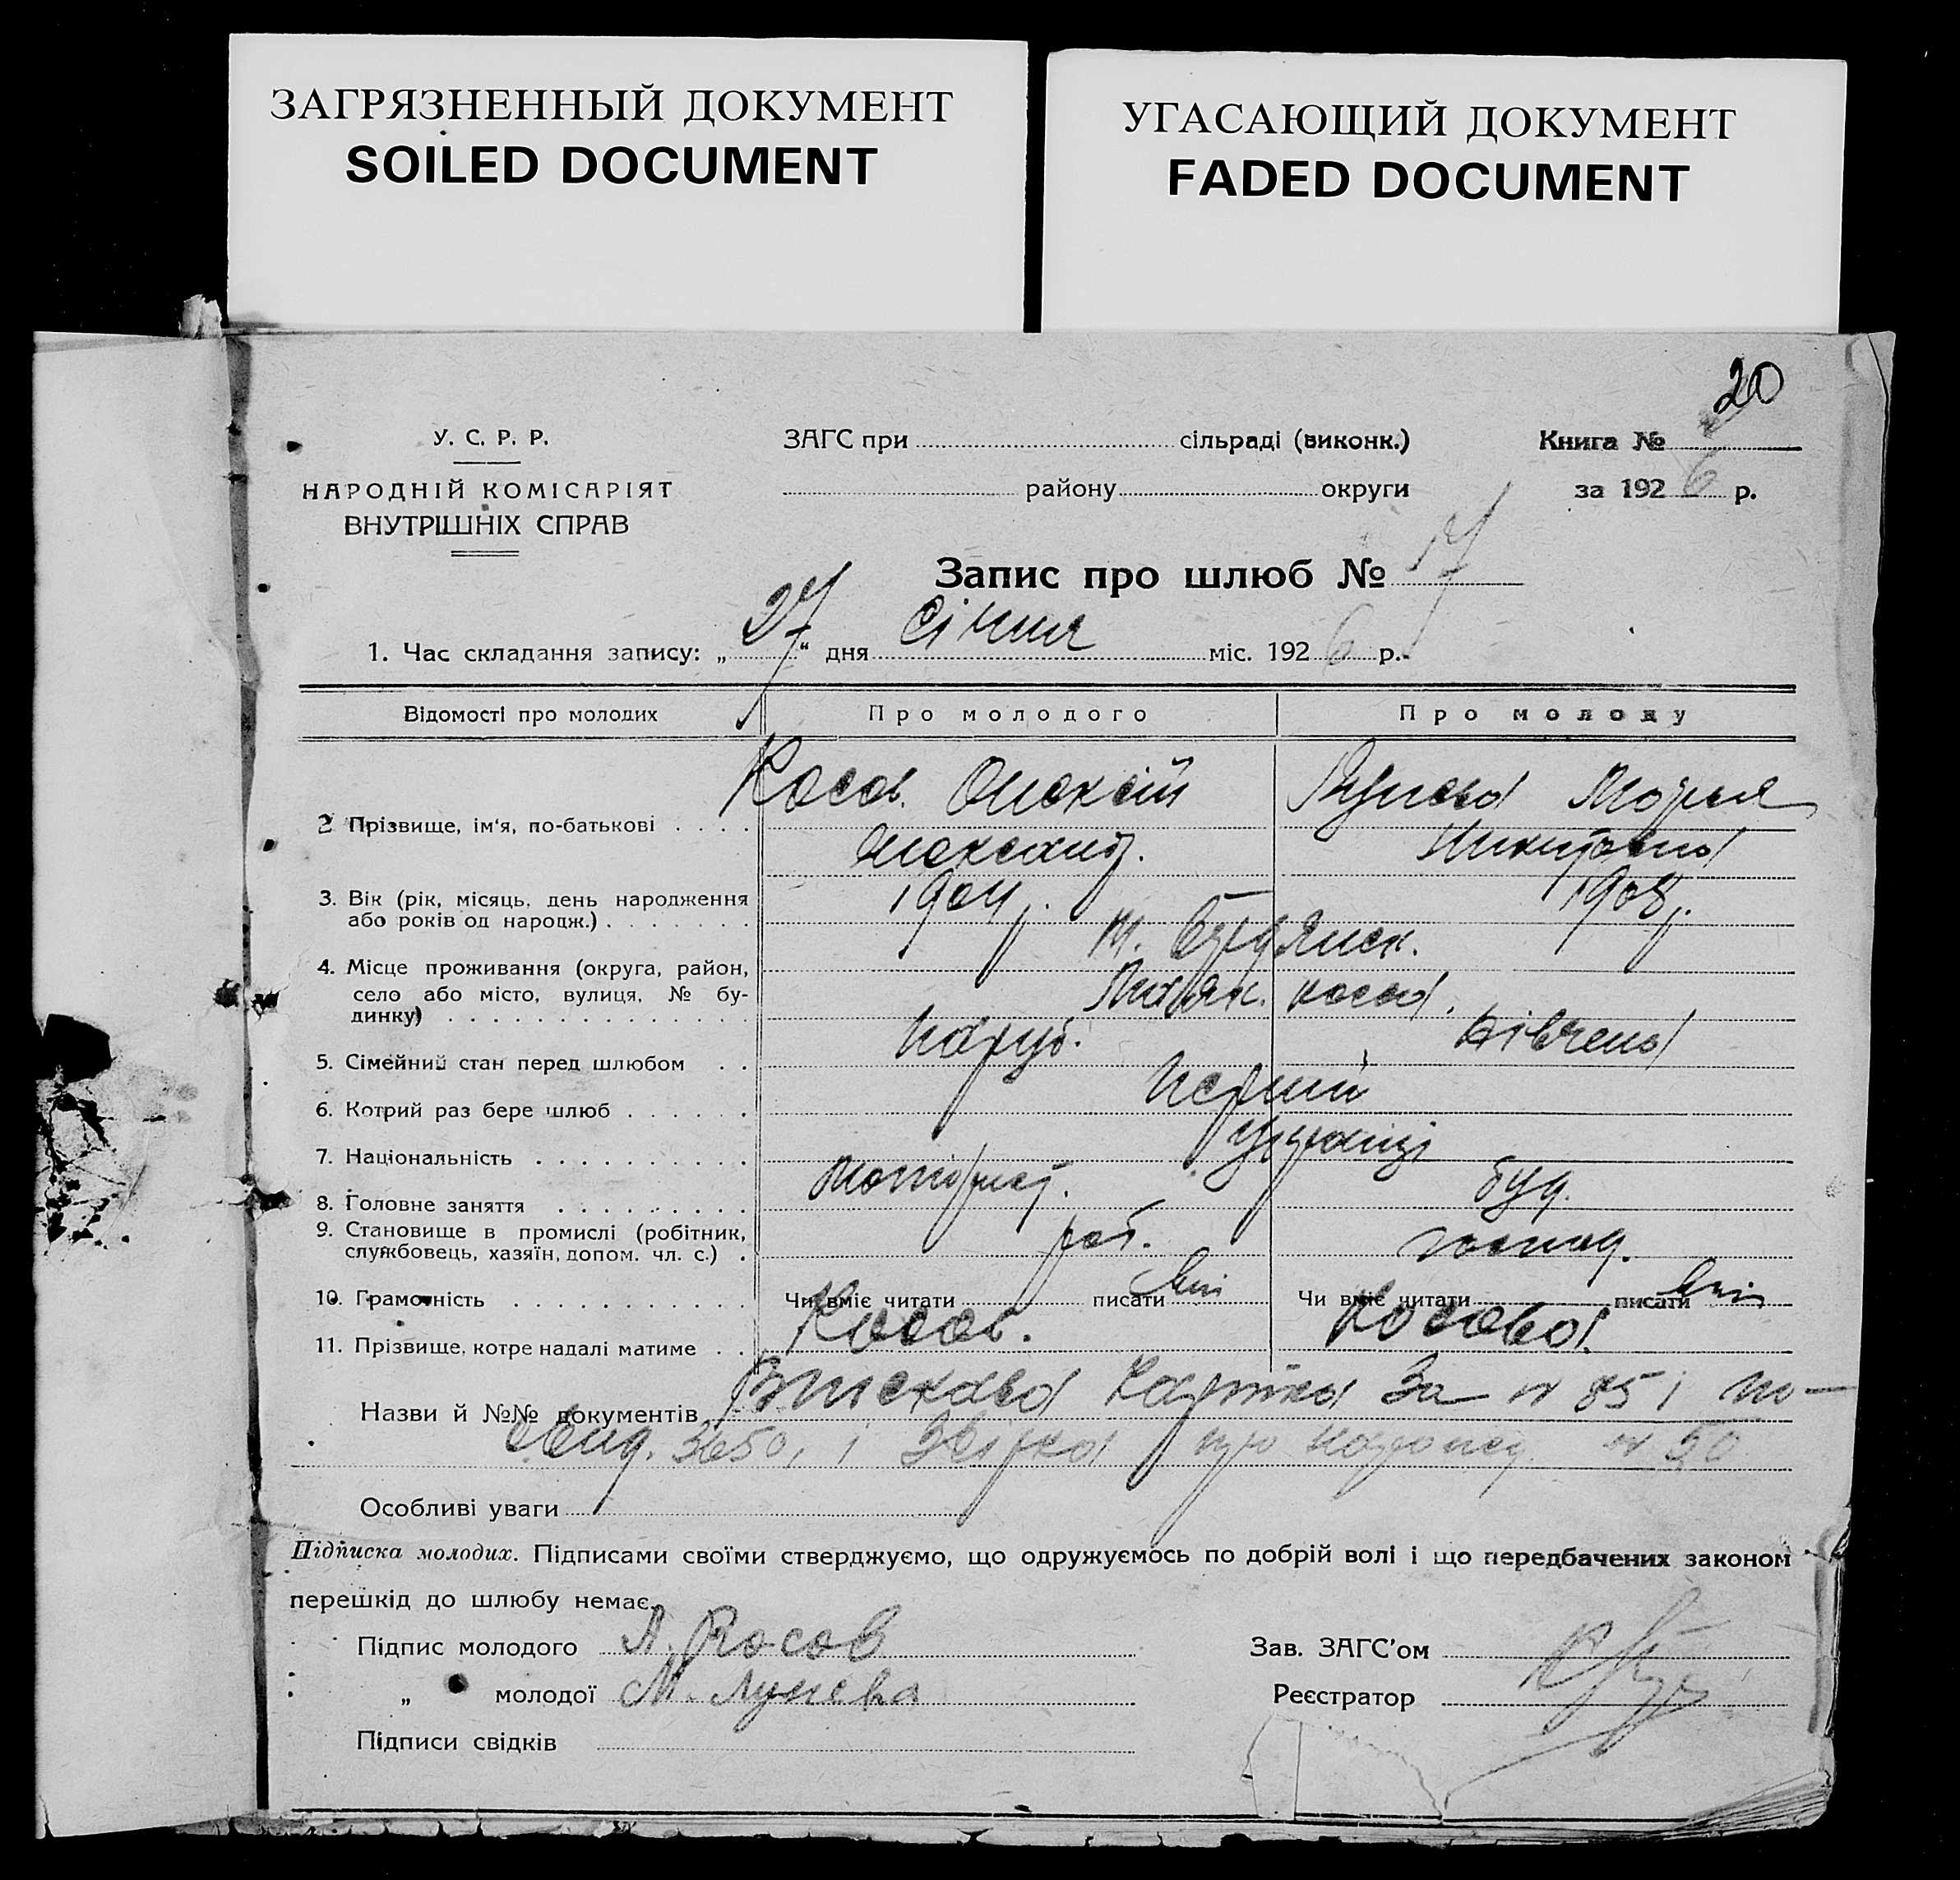 ЗАГРЯЗНЕННЫЙ ДОКУМЕНТ
SOILED DOCUMENT
УГАСАЮЩИЙ ДОКУМЕНТ
FADED DOCUMENT
20
У. С. Р. Р.
НАРОДНІЙ КОМІСАРІЯТ
ВНУТРІШНІХ СПРАВ
ЗАГС при сільраді (виконк.)
району округи
Книга №
за 1926 р.
Запис про шлюб № 17
1. Час складання запису: „27“ дня Січня міс. 1926 р.
Відомості про молодих Про молодого Про молоду
2. Прізвище, ім'я, по-батькові . . . . Косов. Олексій Лунева Марія
Олександ. Никитовна
3. Вік (рік, місяць, день народження 1904 р. 1908 р.
або років од народж.) . . . . . . .
4. Місце проживання (округа, район, м. Бердянск.
село або місто, вулиця, № бу-
динку) . . . . . . . . . . . . . . коса.
5. Сімейний стан перед шлюбом . . паруб. дівчена
6. Котрий раз бере шлюб . . . . . . Перший
7. Національність . . . . . . . . . . Українці
8. Головне заняття . . . . . . . . . моторист.
9. Становище в промислі (робітник, роб. господ.
службовець, хазяїн, допом. чл. с.) .
10. Грамотність . . . . . . . . . . . Чи вміє читати писати вміє Чи вміє читати писати вміє
11. Прізвище, котре надалі матиме . . Косов. Косова.
Назви й №№ документів картка за № 851
3650, і Звірка про народж. № 50
Особливі уваги
Підписка молодих. Підписами своїми стверджуємо, що одружуємось по добрій волі і що передбачених законом
перешкід до шлюбу немає.
Підпис молодого А. Косов
„ молодої М. Лунева
Підписи свідків
Зав. ЗАГС'ом
Реєстратор